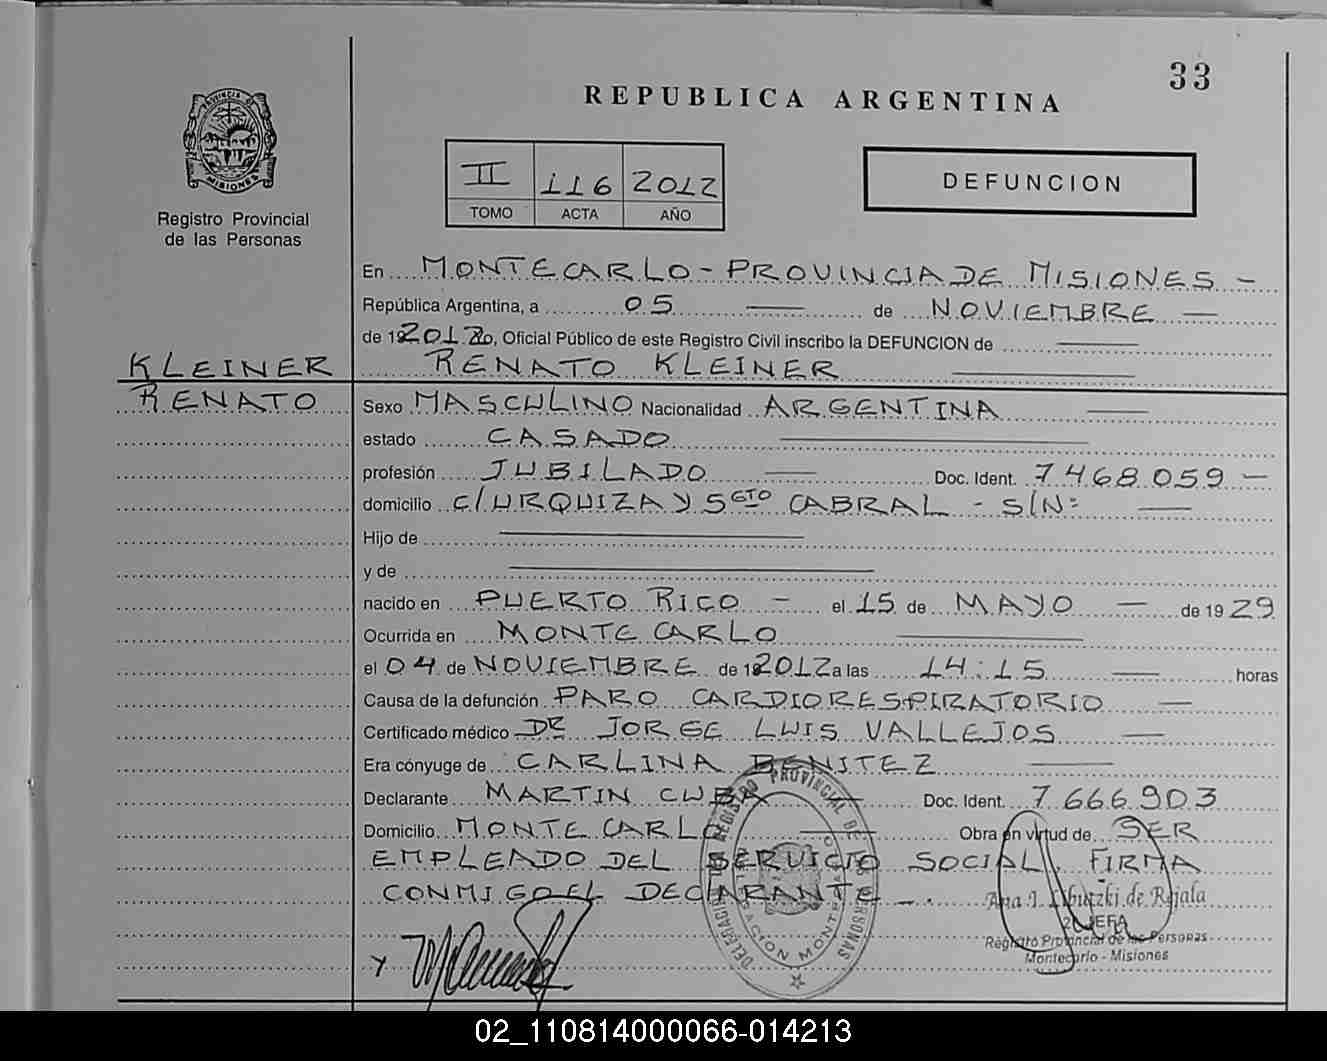 33
REPUBLICA ARGENTINA
PROVINCIA DE
MISIONES
Registro Provincial
de las Personas
II 116 2012
TOMO ACTA AÑO
DEFUNCION
En MONTECARLO - PROVINCIA DE MISIONES -
República Argentina, a 05 — de NOVIEMBRE —
de 2012, Oficial Público de este Registro Civil inscribo la DEFUNCION de —
KLEINER
RENATO
RENATO KLEINER —
Sexo MASCULINO Nacionalidad ARGENTINA —
estado CASADO —
profesión JUBILADO — Doc. Ident. 7468059 -
domicilio C/URQUIZA Y SGTO CABRAL - S/Nº —
Hijo de —
y de —
nacido en PUERTO RICO - el 15 de MAYO — de 1929
Ocurrida en MONTECARLO —
el 04 de NOVIEMBRE de 2012 a las 14:15 — horas
Causa de la defunción PARO CARDIORESPIRATORIO —
Certificado médico DR JORGE LUIS VALLEJOS —
Era cónyuge de CARLINA BENITEZ —
Declarante MARTIN CUBA — Doc. Ident. 7666903
Domicilio MONTECARLO — Obra en virtud de SER
EMPLEADO DEL SERVICIO SOCIAL. FIRMA
CONMIGO EL DECLARANTE -.
REGISTRO PROVINCIAL DE LAS PERSONAS
Ana I. de Rejala
JEFA
Registro Provincial de las Personas
Montecarlo - Misiones
02_110814000066-014213